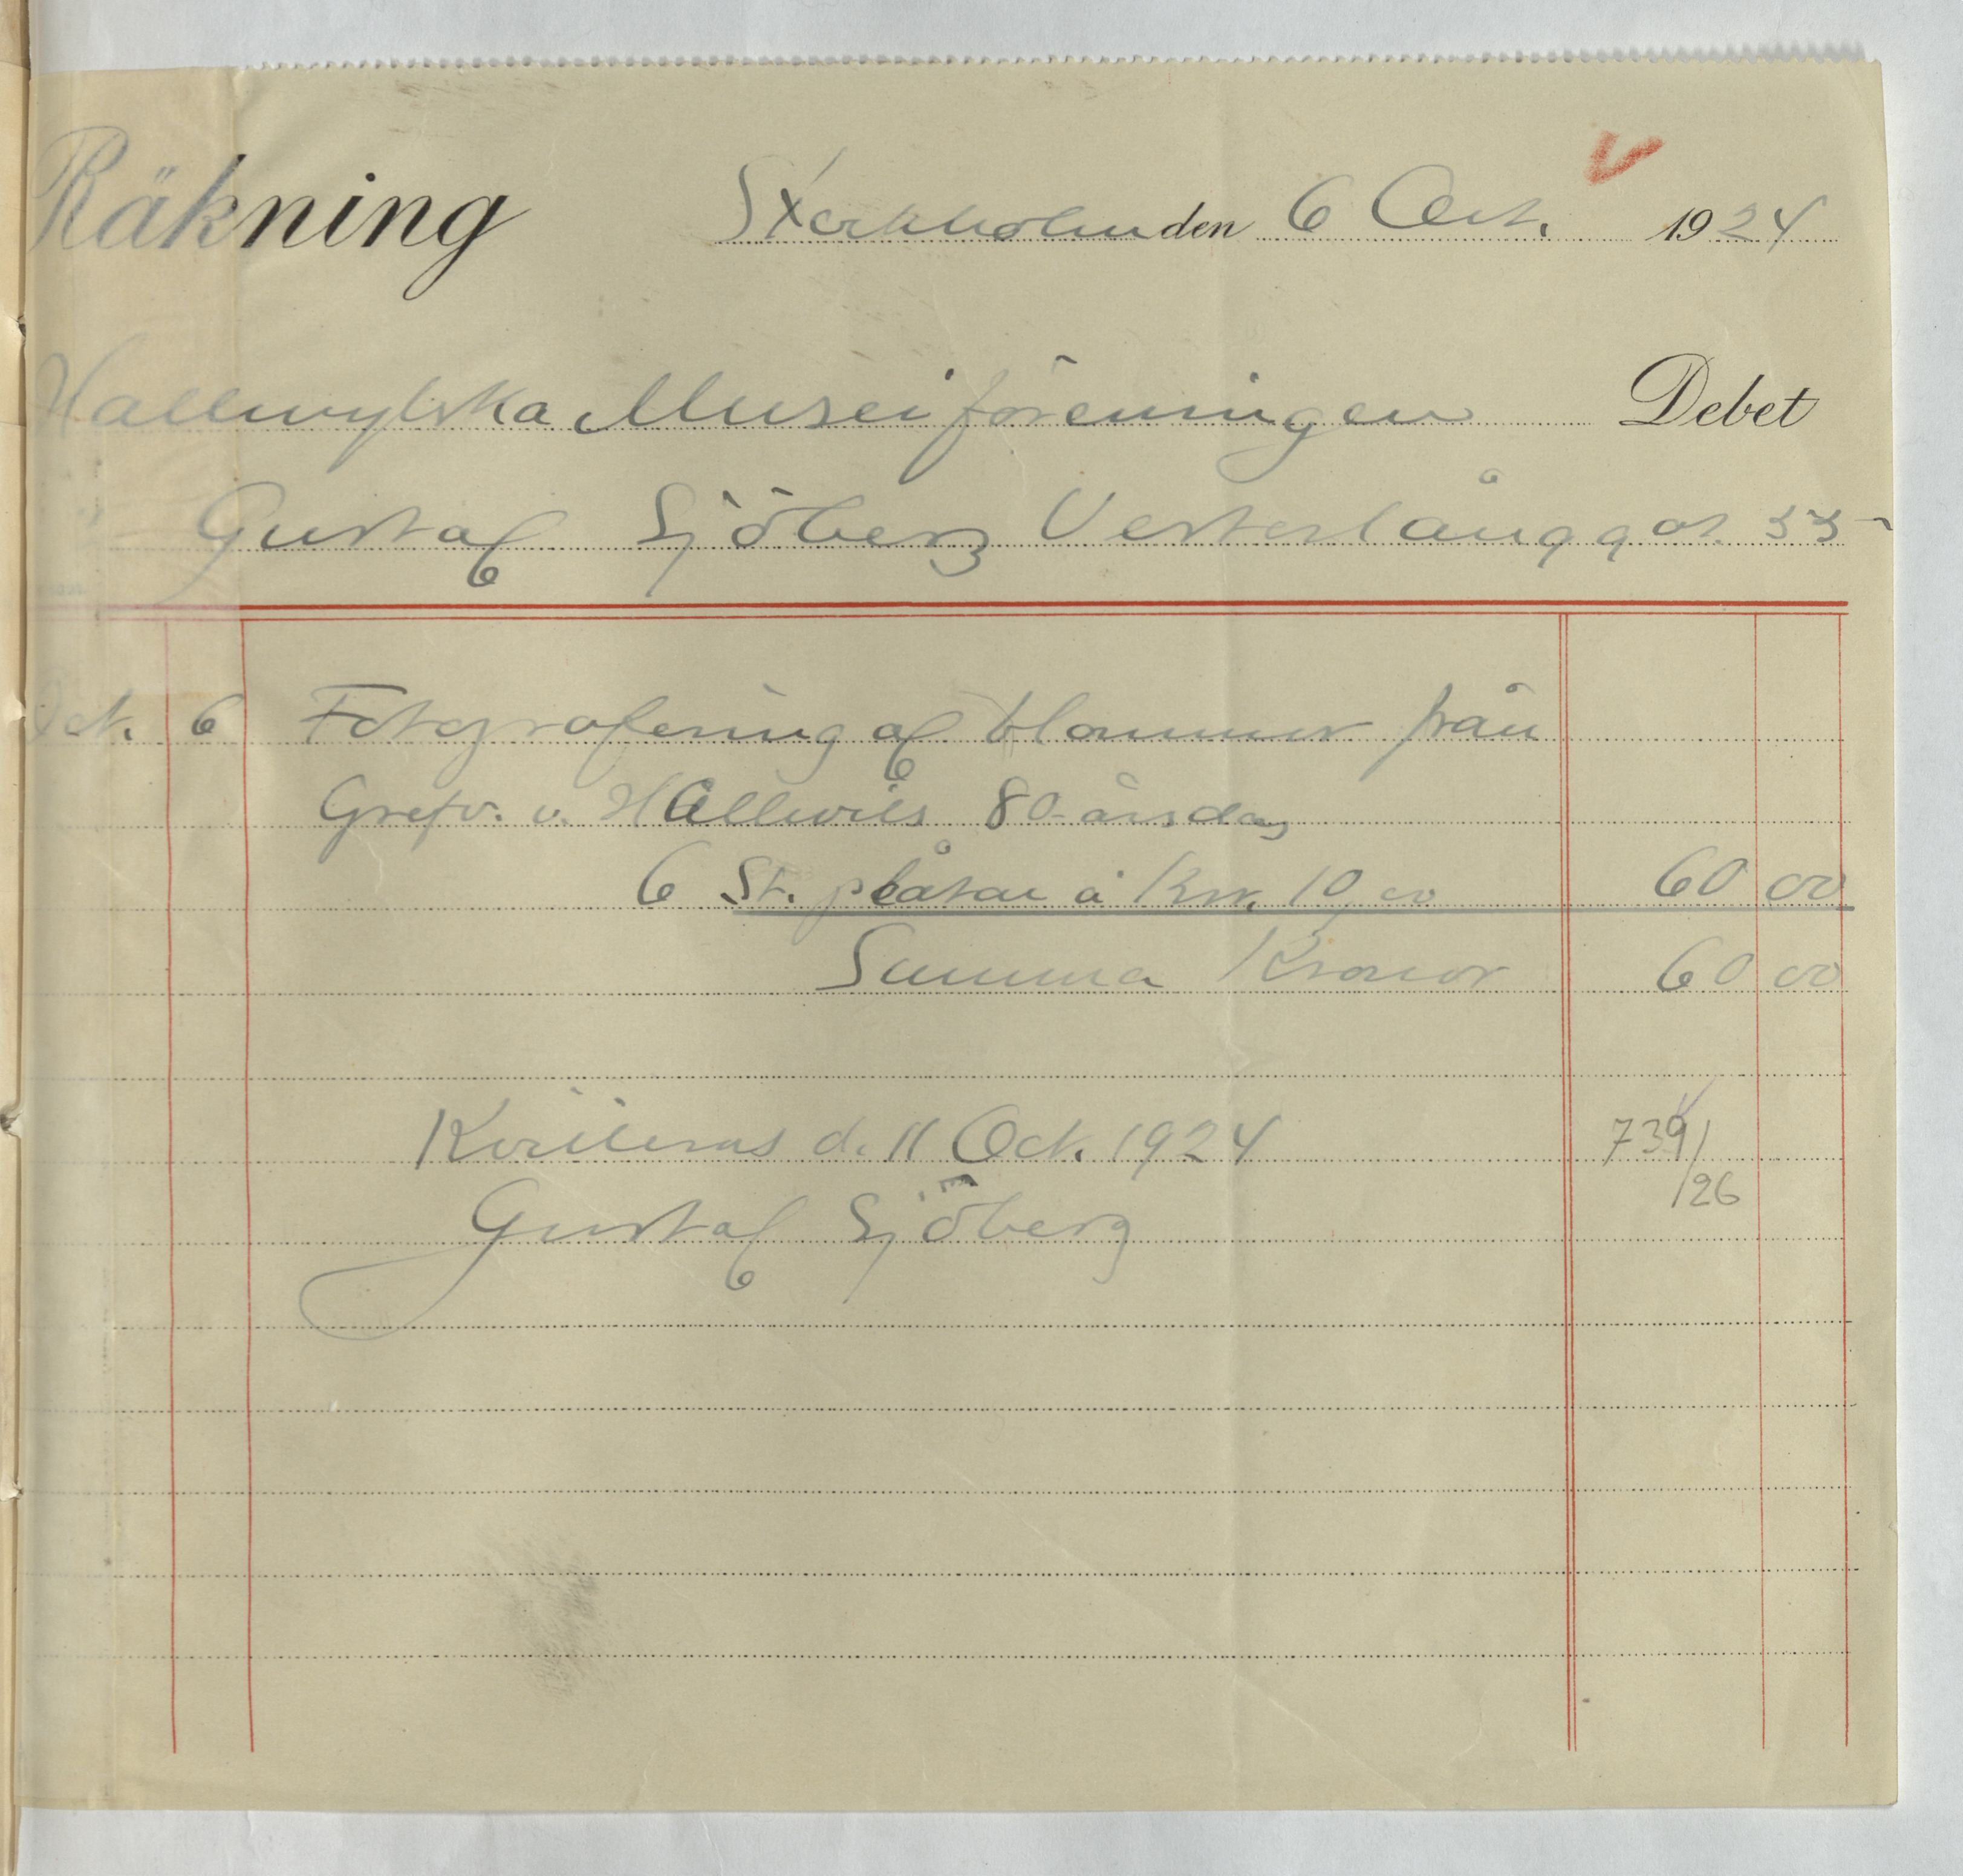 Räkning Stockholm den 6 Oct. 1924
Hallwylska Museiföreningen Debet
Gustaf Sjöberg Vesterlångga͞t. 55
Oct. 6 Fotografering af blommor från
Grefv. v. Hallwils 80-årsdag
6 St. plåtar à Kr. 10,00 60 00
Summa Kronor 60 00
Kvitteras d. 11 Oct. 1924 739/
/26
Gustaf Sjöberg